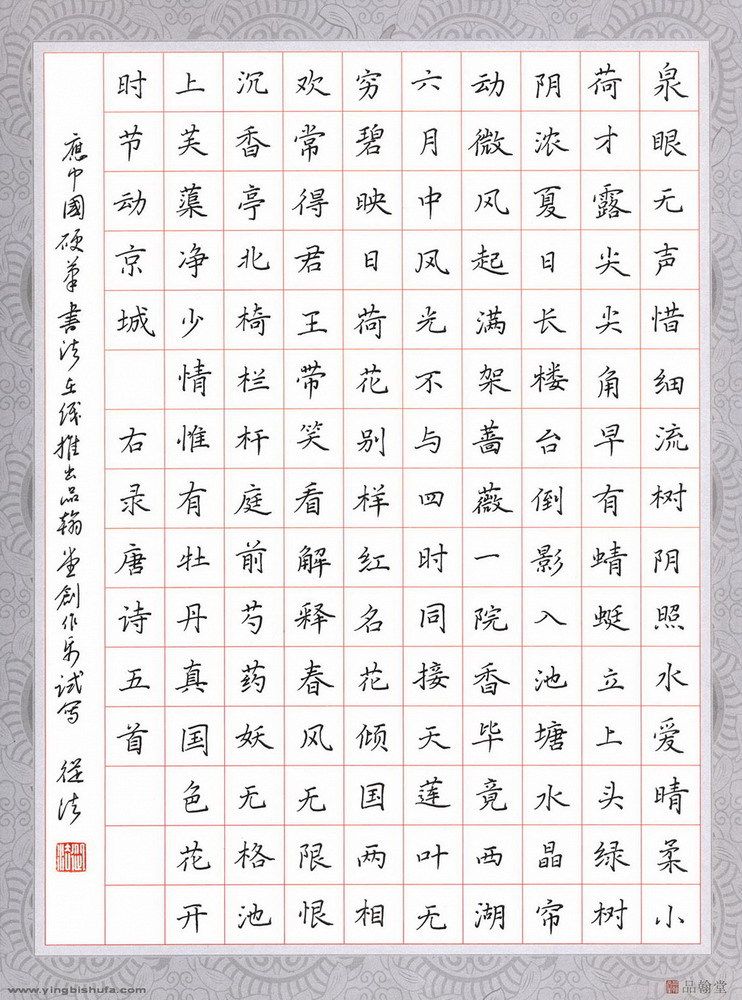 泉眼无声惜细流树阴照水爱晴柔小
荷才露尖尖角早有蜻蜓立上头绿树
阴浓夏日长楼台倒影入池塘水晶帘
动微风起满架蔷薇一院香毕竟西湖
六月中风光不与四时同接天莲叶无
穷碧映日荷花别样红名花倾国两相
欢常得君王带笑看解释春风无限恨
沉香亭北椅栏杆庭前芍药妖无格池
上芙蕖净少情惟有牡丹真国色花开
时节动京城 右录唐诗五首
應中國硬筆書法在线推出品翰堂創作試写 從法
www.yingbishufa.com
品翰堂